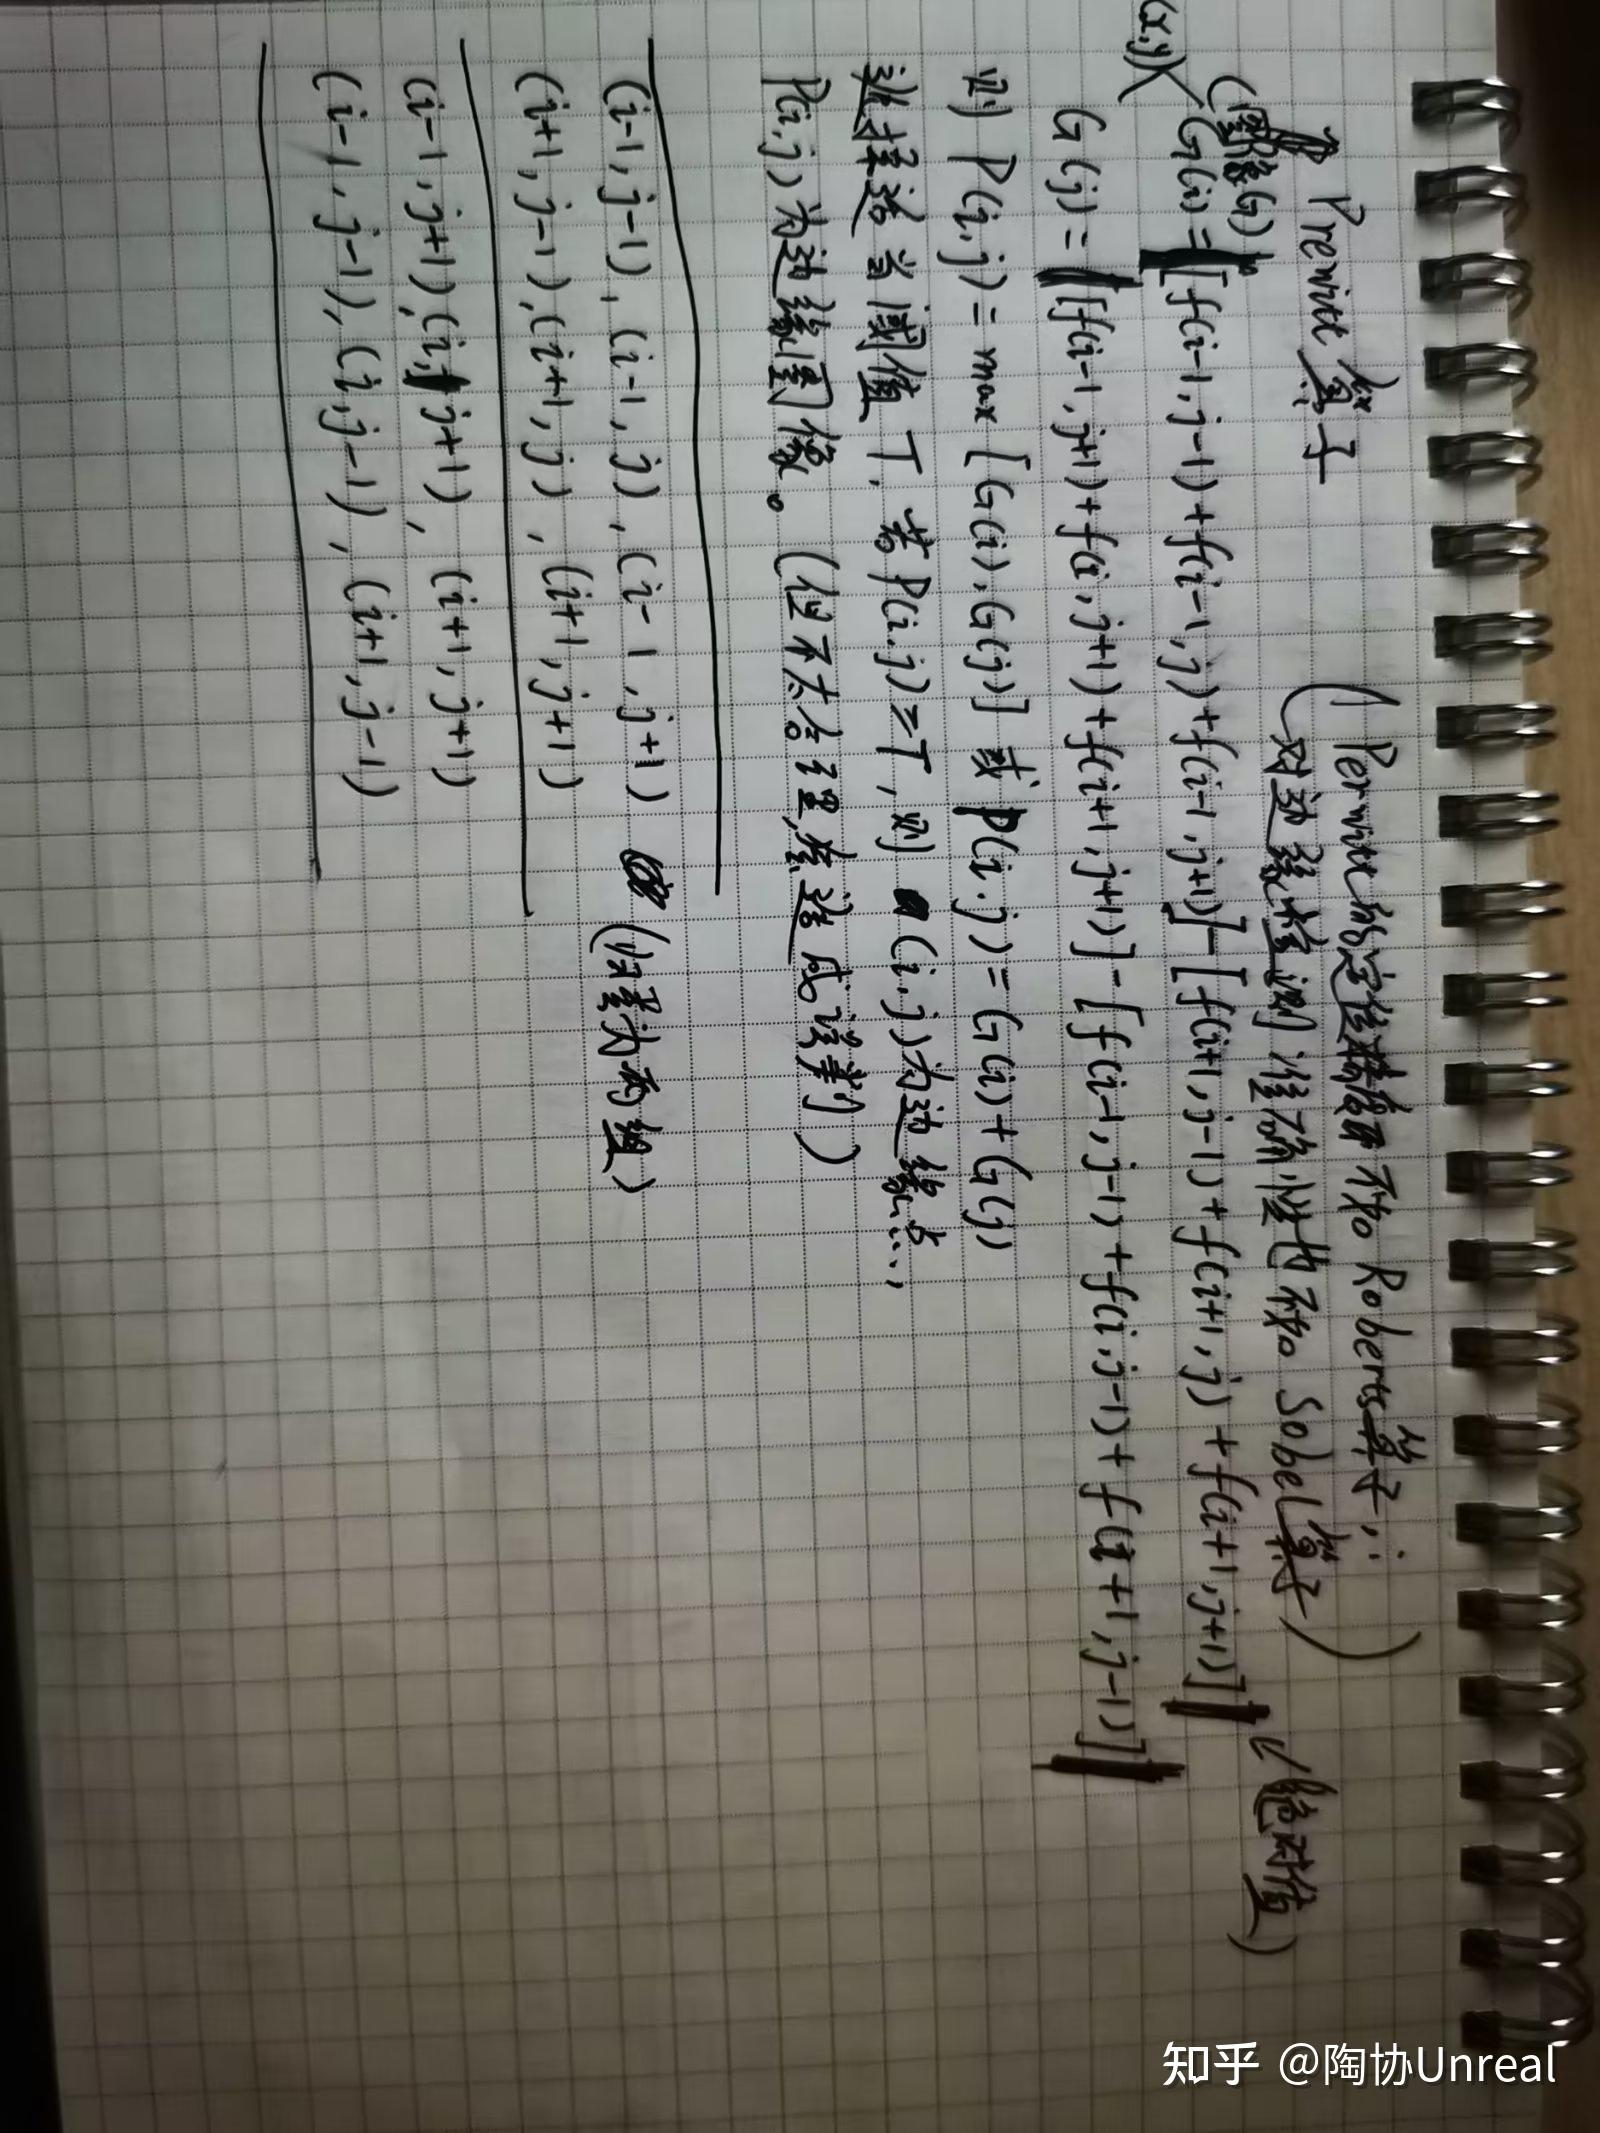 Prewitt算子
(Perwitt的定位精度不如Roberts算子;
对边缘检测准确性也不如Sobel算子)
(图像G)
(x,y)
G(i)=|[f(i-1,j-1)+f(i-1,j)+f(i-1,j+1)]-[f(i+1,j-1)+f(i+1,j)+f(i+1,j+1)]| (绝对值)
G(j)=|[f(i-1,j+1)+f(i,j+1)+f(i+1,j+1)]-[f(i-1,j-1)+f(i,j-1)+f(i+1,j-1)]|
则 P(i,j)=max[G(i),G(j)] 或 P(i,j)=G(i)+G(j)
选择适当阈值T,若P(i,j)≥T,则(i,j)为边缘点...,
P(i,j)为边缘图像。(但不太合理,会造成误判)
(i-1,j-1),(i-1,j),(i-1,j+1) (归零为两组)
(i+1,j-1),(i+1,j),(i+1,j+1)
(i-1,j+1),(i,j+1),(i+1,j+1)
(i-1,j-1),(i,j-1),(i+1,j-1)
知乎 @陶协Unreal